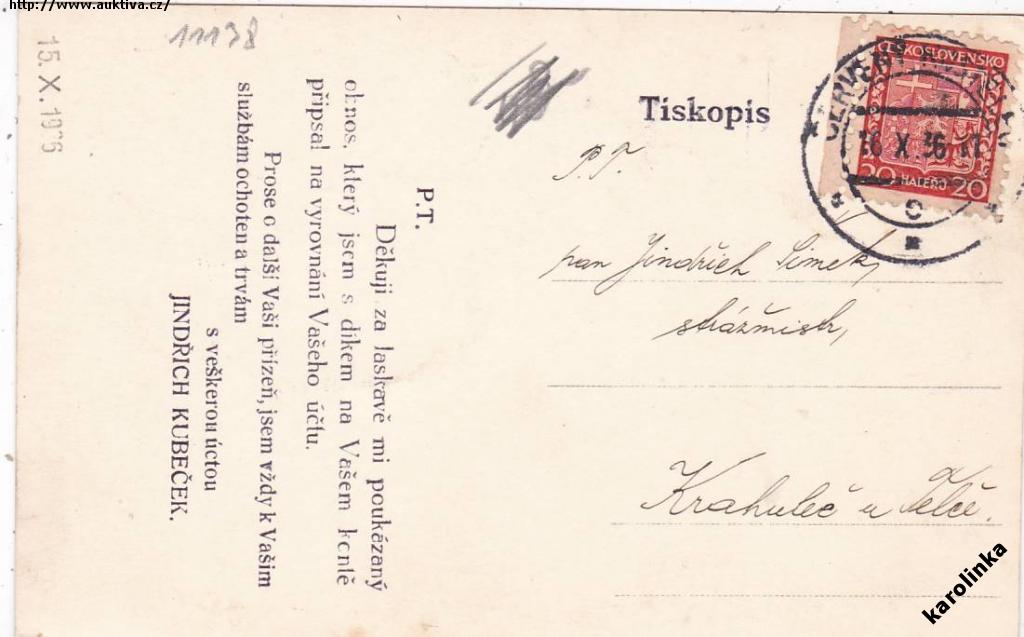 http://www.auktiva.cz/
11138
15.X.1936
P.T.
Děkuji za laskavě mi poukázaný
obnos, který jsem s díkem na Vašem kontě
připsal na vyrovnání Vašeho účtu.
Prose o další Vaši přízeň, jsem vždy k Vašim
službám ochoten a trvám
s veškerou úctou
JINDŘICH KUBEČEK.
Tiskopis
ČESKOSLOVENSKO
16.X.36
20 HALÉŘŮ 20
C
P.T.
pan Jindřich Šimek,
strážmistr,
Krahulec u Telče.
karolinka